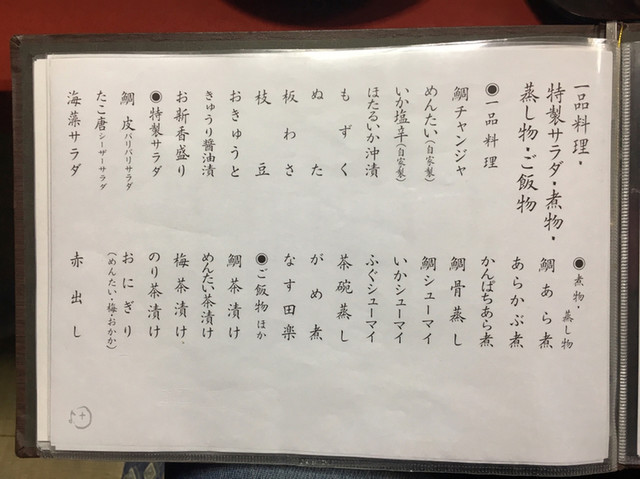 一品料理・
特製サラダ・煮物・
蒸し物・ご飯物
◉一品料理
鯛チャンジャ
めんたい(自家製)
いか塩辛(自家製)
ほたるいか沖漬
もずく
ぬた
板わさ
枝豆
おきゅうと
きゅうり醬油漬
お新香盛り
◉特製サラダ
鯛皮パリパリサラダ
たこ唐シーザーサラダ
海藻サラダ
◉煮物・蒸し物
鯛あら煮
あらかぶ煮
かんぱちあら煮
鯛骨蒸し
鯛シューマイ
いかシューマイ
ふぐシューマイ
茶碗蒸し
がめ煮
なす田楽
◉ご飯物ほか
鯛茶漬け
めんたい茶漬け
梅茶漬け
のり茶漬け
おにぎり
(めんたい・梅・おかか)
赤出し